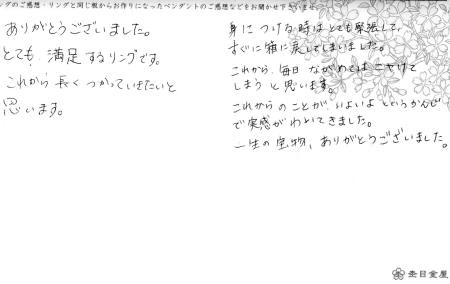 ングのご感想・リングと同じ板からお作りになったペンダントのご感想などをお聞かせ下さいませ
ありがとうございました。
とても、満足するリングです。
これから長くつかっていきたいと
思います。
身につける時はとても緊張して、
すぐに箱に戻してしまいました。
これから、毎日ながめてはニヤけて
しまうと思います。
これからのことがいよいよというかんじ
で実感がわいてきました。
一生の宝物、ありがとうございました。
杢目金屋